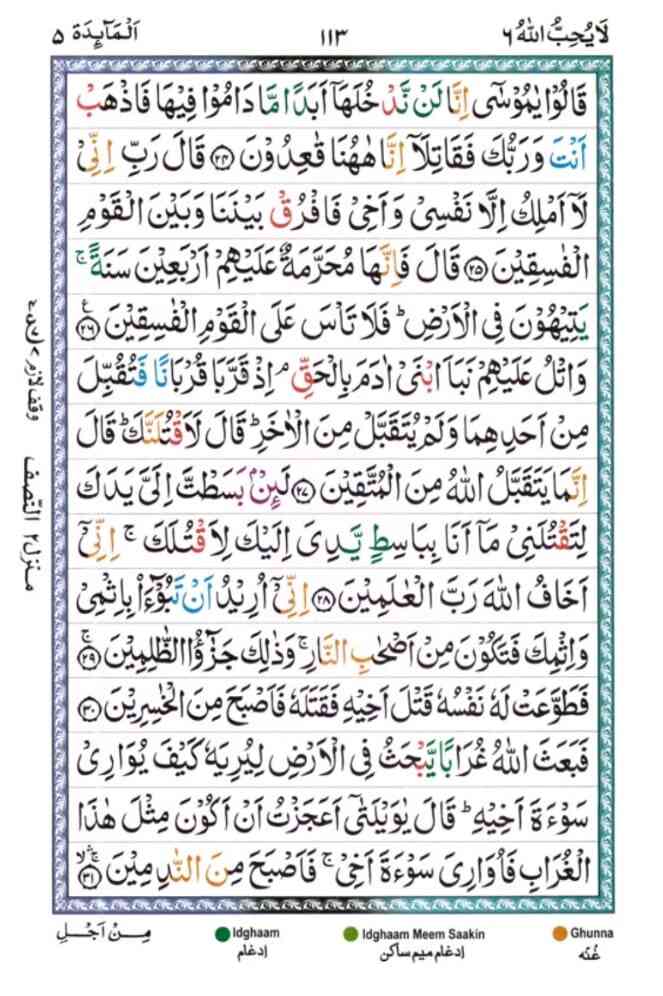 لَا یُحِبُّ اللّٰهُ ٦
١١٣
اَلْمَآىِٕدَة ٥
قَالُوْا یٰمُوْسٰۤی اِنَّا لَنْ نَّدْخُلَهَاۤ اَبَدًا مَّا دَامُوْا فِیْهَا فَاذْهَبْ
اَنْتَ وَ رَبُّكَ فَقَاتِلَاۤ اِنَّا هٰهُنَا قٰعِدُوْنَ ﴿۲۴﴾ قَالَ رَبِّ اِنِّیْ
لَاۤ اَمْلِكُ اِلَّا نَفْسِیْ وَ اَخِیْ فَافْرُقْ بَیْنَنَا وَ بَیْنَ الْقَوْمِ
الْفٰسِقِیْنَ ﴿۲۵﴾ قَالَ فَاِنَّهَا مُحَرَّمَةٌ عَلَیْهِمْ اَرْبَعِیْنَ سَنَةً ۚ
یَتِیْهُوْنَ فِی الْاَرْضِ ؕ فَلَا تَاْسَ عَلَی الْقَوْمِ الْفٰسِقِیْنَ ﴿۲۶﴾ ع
وَ اتْلُ عَلَیْهِمْ نَبَاَ ابْنَیْ اٰدَمَ بِالْحَقِّ ۘ اِذْ قَرَّبَا قُرْبَانًا فَتُقُبِّلَ
مِنْ اَحَدِهِمَا وَ لَمْ یُتَقَبَّلْ مِنَ الْاٰخَرِ ؕ قَالَ لَاَقْتُلَنَّكَ ؕ قَالَ
اِنَّمَا یَتَقَبَّلُ اللّٰهُ مِنَ الْمُتَّقِیْنَ ﴿۲۷﴾ لَىِٕنْۢ بَسَطْتَّ اِلَیَّ یَدَكَ
لِتَقْتُلَنِیْ مَاۤ اَنَا بِبَاسِطٍ یَّدِیَ اِلَیْكَ لِاَقْتُلَكَ ۚ اِنِّیْۤ
اَخَافُ اللّٰهَ رَبَّ الْعٰلَمِیْنَ ﴿۲۸﴾ اِنِّیْۤ اُرِیْدُ اَنْ تَبُوْٓءَاۡ بِاِثْمِیْ
وَ اِثْمِكَ فَتَكُوْنَ مِنْ اَصْحٰبِ النَّارِ ۚ وَ ذٰلِكَ جَزٰٓؤُا الظّٰلِمِیْنَ ﴿۲۹﴾ ۚ
فَطَوَّعَتْ لَهٗ نَفْسُهٗ قَتْلَ اَخِیْهِ فَقَتَلَهٗ فَاَصْبَحَ مِنَ الْخٰسِرِیْنَ ﴿۳۰﴾
فَبَعَثَ اللّٰهُ غُرَابًا یَّبْحَثُ فِی الْاَرْضِ لِیُرِیَهٗ كَیْفَ یُوَارِیْ
سَوْءَةَ اَخِیْهِ ؕ قَالَ یٰوَیْلَتٰۤی اَعَجَزْتُ اَنْ اَكُوْنَ مِثْلَ هٰذَا
الْغُرَابِ فَاُوَارِیَ سَوْءَةَ اَخِیْ ۚ فَاَصْبَحَ مِنَ النّٰدِمِیْنَ ﴿۳۱﴾ ۚۛۙ
مِـنْ اَجْـلِ
Idghaam
ادغام
Idghaam Meem Saakin
ادغام میم ساکن
Ghunna
غُنّه
وقف لازم
منزل ٢ النّصف